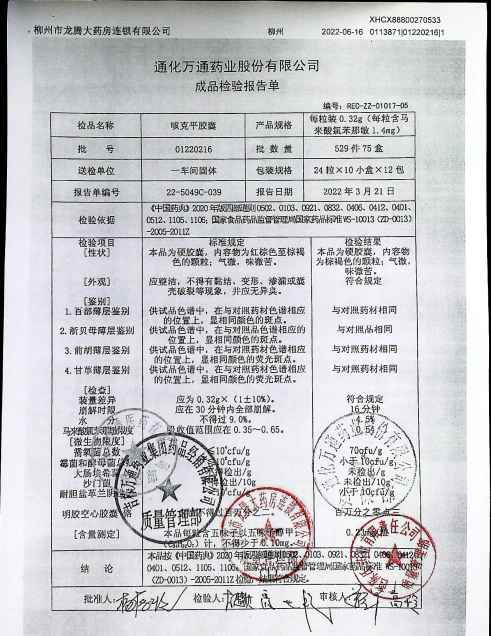 XHCX88800270533
柳州市龙腾大药房连锁有限公司 柳州 2022-06-16 0113871|01220216|1
通化万通药业股份有限公司
成品检验报告单
编号：REC-ZZ-01017-05
检品名称 咳克平胶囊 产品规格 每粒装 0.32g（每粒含马来酸氯苯那敏 1.4mg）
批 号 01220216 批 数 量 529 件 75 盒
送检单位 一车间固体 包装规格 24 粒×10 小盒×12 包
报告单编号 22-5049C-039 报告日期 2022 年 3 月 21 日
检验依据 《中国药典》2020 年版四部通则 0502、0103、0921、0832、0406、0412、0401、
0512、1105、1106；国家食品药品监督管理局国家药品标准 WS-10013（ZD-0013）
-2005-2011Z
检验项目 标准规定 检验结果
[性状] 本品为硬胶囊，内容物为红棕色至棕褐 本品为硬胶囊，内容物
色的颗粒；气微，味微苦。 为棕褐色的颗粒；气微，
味微苦。
[外观] 应整洁，不得有黏结、变形、渗漏或囊 符合规定
壳破裂等现象，并应无异臭。
[鉴别]
1.百部薄层鉴别 供试品色谱中，在与对照药材色谱相应 与对照药材相同
的位置上，显相同颜色的斑点。
2.浙贝母薄层鉴别 供试品色谱中，在与对照品色谱相应的 与对照品相同
位置上，显相同颜色的斑点。
3.前胡薄层鉴别 供试品色谱中，在与对照药材色谱相应 与对照药材相同
的位置上，显相同颜色的荧光斑点。
4.甘草薄层鉴别 供试品色谱中，在与对照药材色谱相应 与对照药材相同
的位置上，显相同颜色的荧光斑点。
[检查]
装量差异 应为 0.32g×（1±10%）。 符合规定
崩解时限 应在 30 分钟内全部崩解。 16 分钟
水 分 不得过 9.0%。 4.5%
马来酸氯苯 吸收值范围应在 0.35~0.65。 0.5
[微生物限度]
需氧菌总数 cfu/g 70cfu/g
霉菌和酵母菌 cfu/g 小于 10cfu/g
大肠埃希菌 未检出/g
沙门菌 未检出/10g 未检出/10g
耐胆盐革兰阴 cfu/g 小于 10cfu/g
明胶空心胶囊 百万分之二 百万分之零点三
[含量测定] 本品每粒含五味子以五味子醇甲
计，不得少于 0.10mg。
结 论 本品按《中国药典》2020 年版四部通则 0502、0103、0921、0832、0406、0412、
0401、0512、1105、1106、国家食品药品监督管理局国家药品标准 WS-10013
（ZD-0013）-2005-2011Z 检验，结果符合规定。
质量管理部
批准人： 检验人： 审核人：